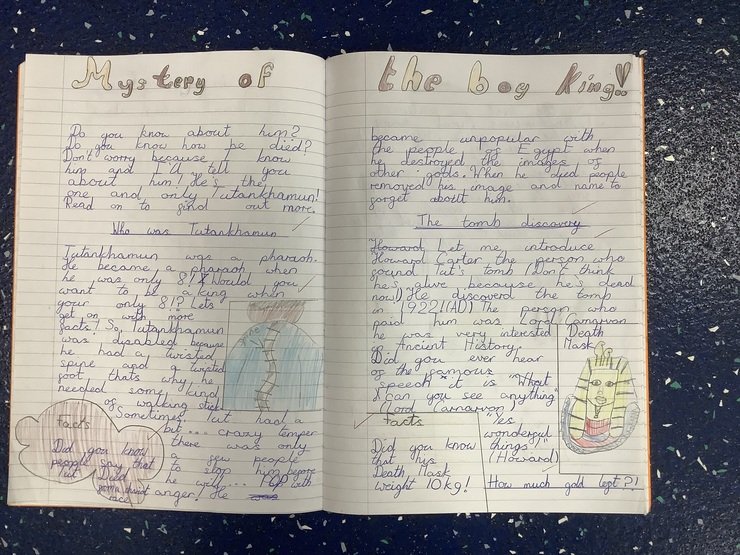 Mystery of the boy King!!
Do you know about him?
Do you know how he died?
Don't worry because I know
him and I'll tell you
about him! He's the
one and only Tutankhamun!
Read on to find out more.
Who was Tutankhamun
Tutankhamun was a pharaoh.
He became a pharaoh when
he was only 8! Would you
want to be a king when
your only 8!? Lets
get on with more
facts! So, Tutankhamun
was disabled because
he had a twisted
spine and a twisted
foot thats why he
needed some kind
of walking stick
Sometimes. Tut had a
bit... crazy temper
there was only
a few people
to stop him before
he will... POP with
anger! He was
Facts
Did you know
people say that
Tut
Dad
race
became unpopular with
the people of Egypt when
he destroyed the images of
other gods. When he died people
removed his image and name to
forget about him.
The tomb discovery
Howard Let me introduce
Howard Carter the person who
found Tut's tomb (Don't think
he's alive because he's dead
now!) He discoverd the tomb
in 1922! (AD) The person who
paid him was Lord Carnarvon
he was very interested
in Ancient History.
Did you ever hear
of the famous
speech it is "What
can you see anything"
(Lord Carnarvon)
"Yes
wonderful
things!"
(Howard)
Death
Mask
Facts
Did you know
that his
Death Mask
weight 10kg!
How much gold left?!